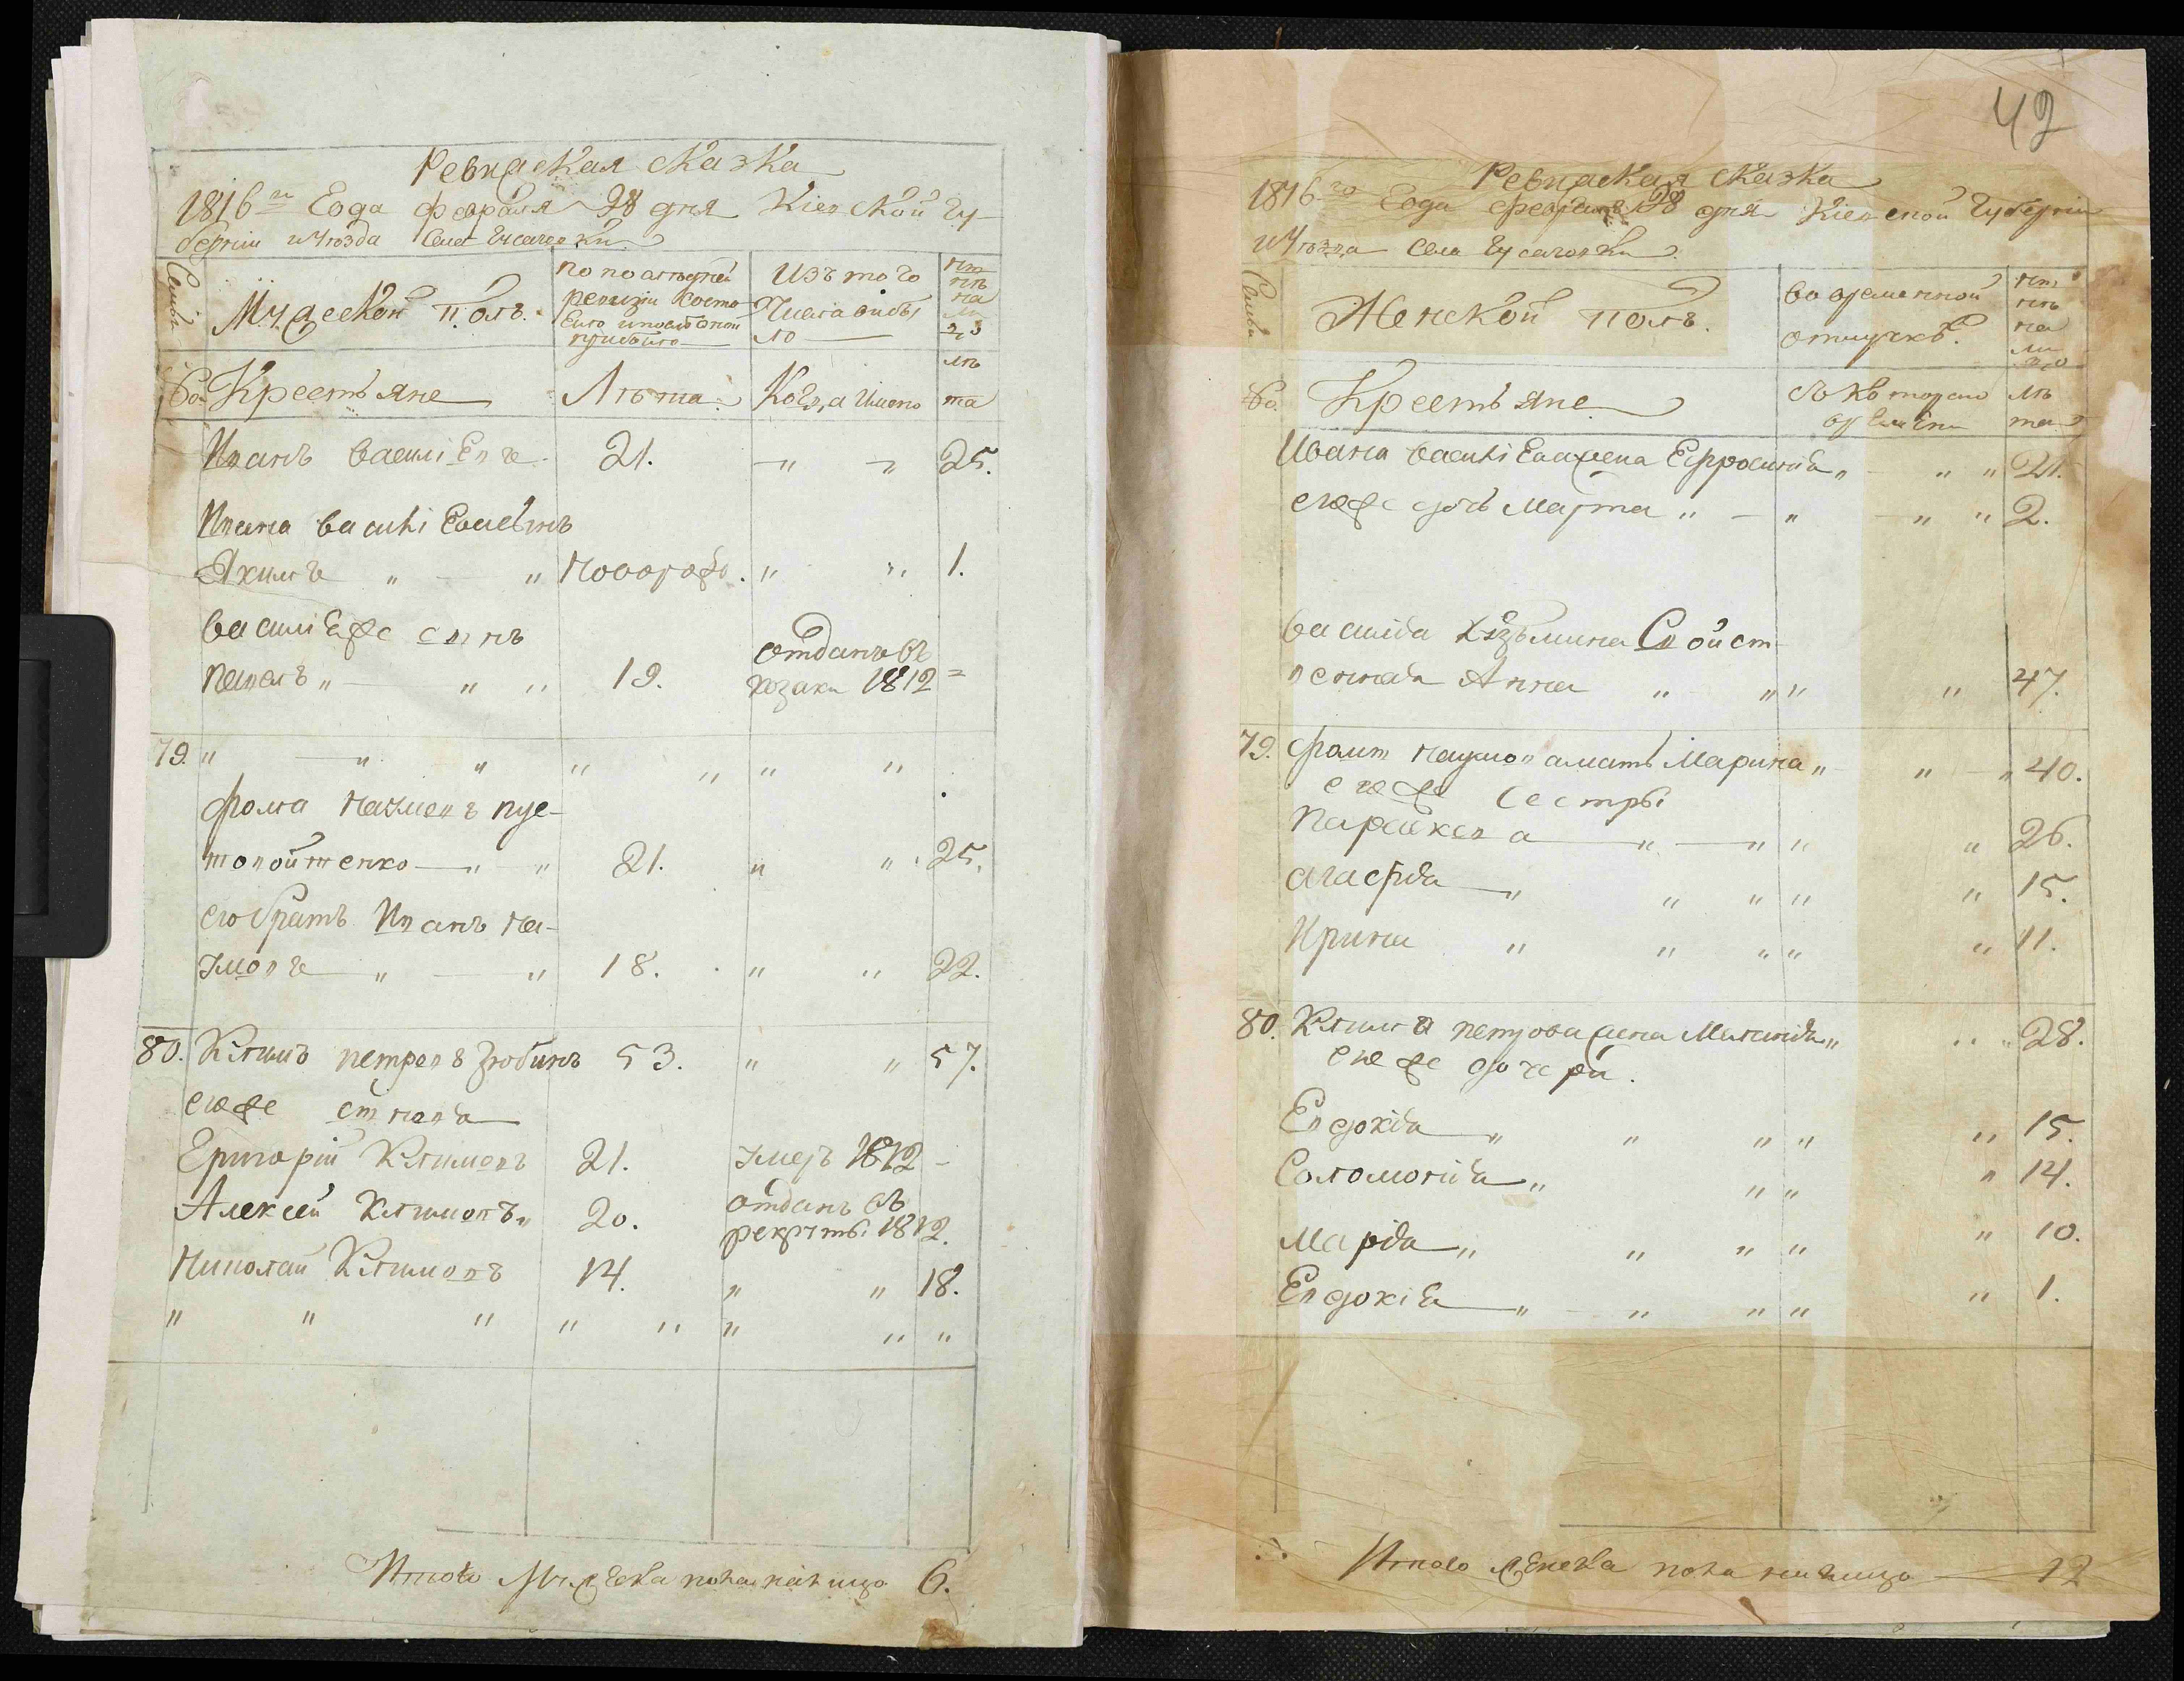 Ревижская сказка
1816го Года февраля 28 дня Кіевской гу-
берніи и уѣзда Села Гусаговки
Семьи
Мужеской полъ.
По последней
ревизіи состо
Изъ того
числа выбы
ло
нынѣ
на
ли
цо
Крестьяне
Лѣта
Когда имено
лѣ
та
Иванъ Василіевъ 21. " " 25.
Ивана Василіева сынъ
Якимъ " " новорож. " " 1.
Василіеже сынъ
Павелъ " " " 19. отданъ въ козаки 1812
79. " " " " " " "
Фома Наумовъ Пус-
товойтенко " " 21. " " 25.
его братъ Иванъ На-
умовъ " " 18. " " 22.
80. Климъ Петровъ Зюбинъ 53. " " 57.
егоже сыновя
Григорій Климовъ 21. умеръ 1812
Алексей Климовъ " 20. отданъ въ рекруты 1812.
Николай Климовъ 14. " " 18.
" " " " " " " "
Итого мужеска пола налицо 6.
42
Ревижская сказка
1816го Года февраля 28 дня Кіевской Губерніи
и уѣзда Села Гусаговки
Семьи
Женской полъ.
во временной
отлучкѣ.
нынѣ
на
ли
цо
Крестьяне
съ котораго
времени
лѣ
та
Ивана Василіева жена Ефросинія " " " 21.
егоже дочь Марта " " " " 2.
Василія Кузьмина Свойст-
венная Анна " " " " 47.
79. Фомы Наумова мать Марина " " " 40.
егоже сестры
Параскева " " " " 26.
Агафія " " " " " 15.
Ирина " " " " " 11.
80. Клима Петрова жена Меланія " " " 28.
егоже дочери.
Евдокія " " " " " 15.
Соломонія " " " " 14.
Марія " " " " " 10.
Евдокія " " " " " 1.
Итого женска пола налицо 12